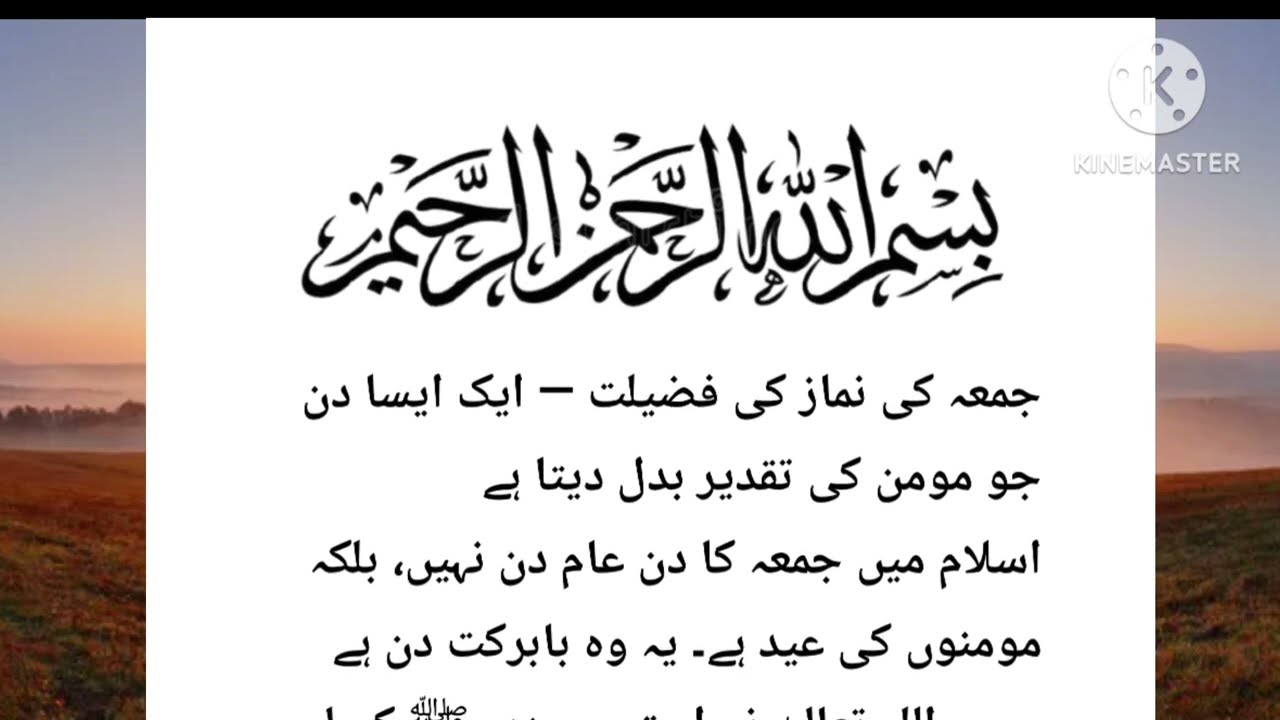 KINEMASTER
بسم الله الرحمن الرحيم
جمعہ کی نماز کی فضیلت – ایک ایسا دن
جو مومن کی تقدیر بدل دیتا ہے
اسلام میں جمعہ کا دن عام دن نہیں، بلکہ
مومنوں کی عید ہے۔ یہ وہ بابرکت دن ہے
ﷺ